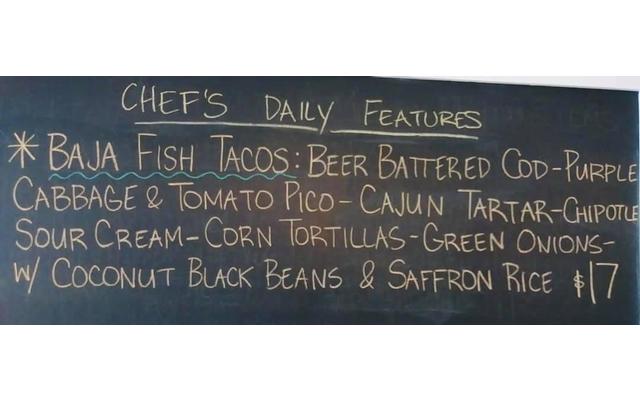 CHEF'S DAILY FEATURES
* BAJA FISH TACOS: BEER BATTERED COD-PURPLE
CABBAGE & TOMATO PICO- CAJUN TARTAR-CHIPOTLE
SOUR CREAM-CORN TORTILLAS-GREEN ONIONS-
W/ COCONUT BLACK BEANS & SAFFRON RICE $17